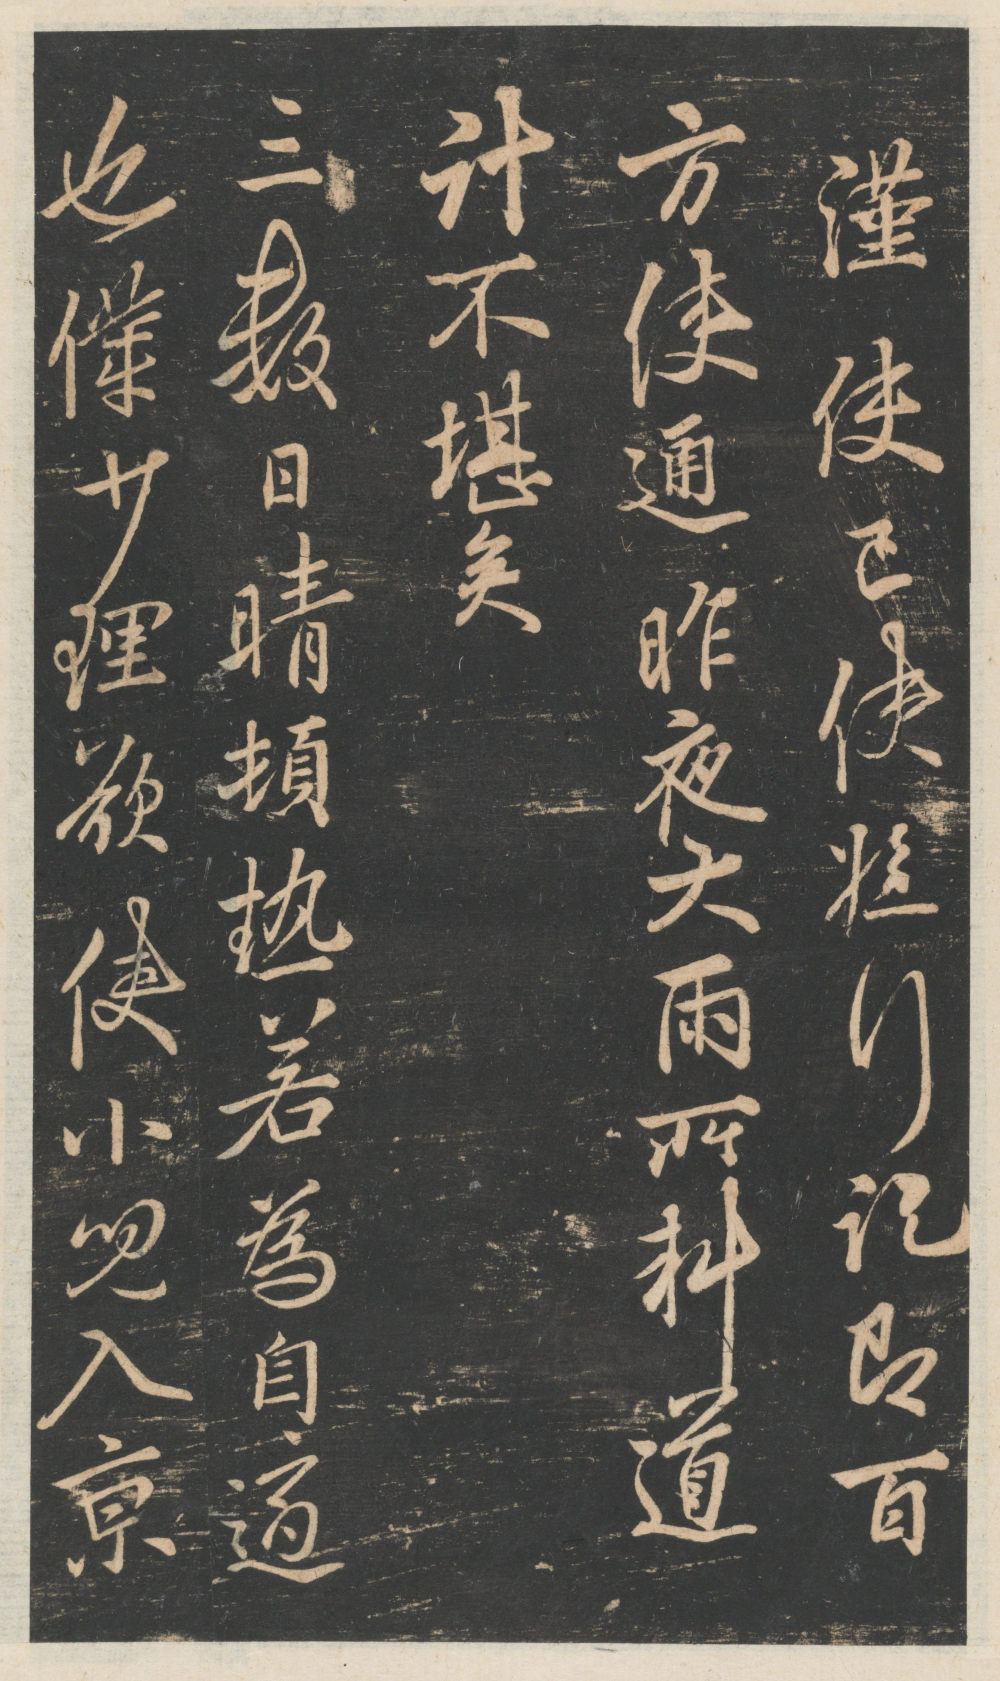 使已使行訖即百
方使通昨夜大雨所料道
計不堪矣
三數日晴頓熱若為自適
也僕少理欲使小兒入京